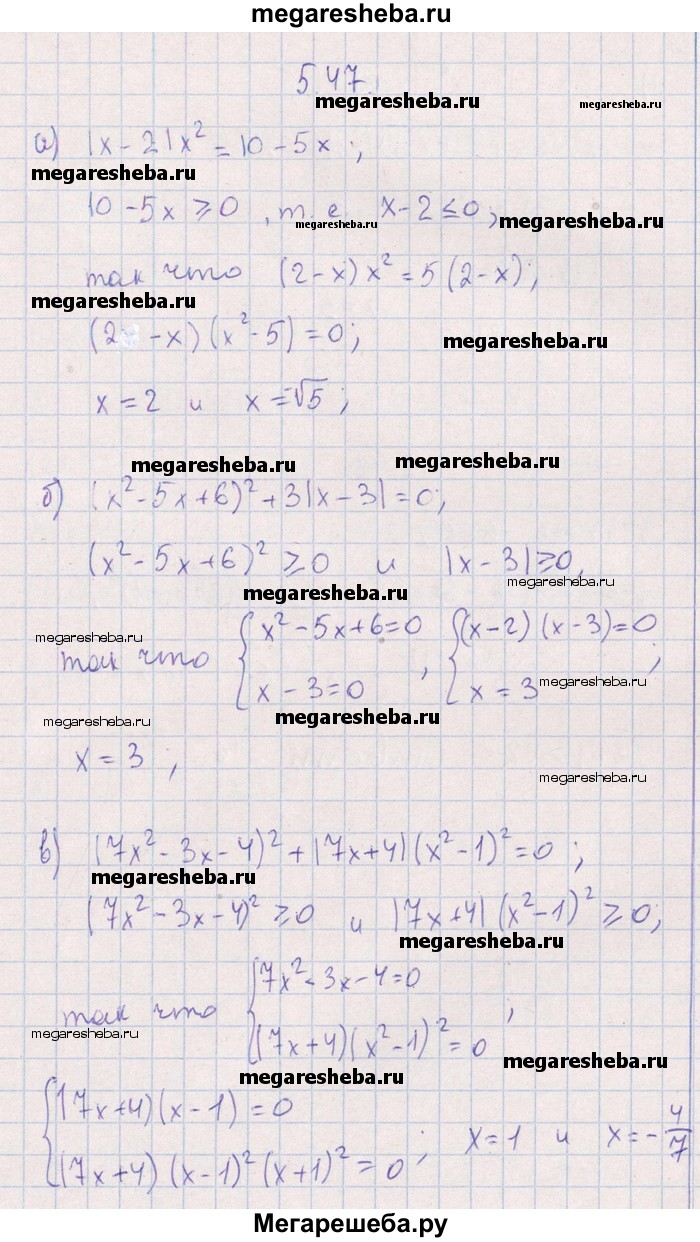 megaresheba.ru
5.47.
megaresheba.ru megaresheba.ru
а) |x - 2|x² = 10 - 5x ;
megaresheba.ru
10 - 5x ⩾ 0 , т. е. x - 2 ≤ 0 ;
megaresheba.ru megaresheba.ru
так что (2 - x) x² = 5 (2 - x) ;
megaresheba.ru
(2 - x) (x² - 5) = 0 ;
megaresheba.ru
x = 2 и x = -√5 ;
megaresheba.ru megaresheba.ru
б) (x² - 5x + 6)² + 3|x - 3| = 0 ;
(x² - 5x + 6)² ⩾ 0 и |x - 3| ⩾ 0 ,
megaresheba.ru megaresheba.ru
megaresheba.ru
так что { x² - 5x + 6 = 0 , { (x - 2) (x - 3) = 0 ;
x - 3 = 0 x = 3
megaresheba.ru
megaresheba.ru megaresheba.ru
x = 3 ;
megaresheba.ru
в) (7x² - 3x - 4)² + |7x + 4| (x² - 1)² = 0 ;
megaresheba.ru
(7x² - 3x - 4)² ⩾ 0 и |7x + 4| (x² - 1)² ⩾ 0 ;
megaresheba.ru
так что { 7x² - 3x - 4 = 0 ;
(7x + 4) (x² - 1)² = 0
megaresheba.ru megaresheba.ru
megaresheba.ru
{ (7x + 4) (x - 1) = 0
(7x + 4) (x - 1)² (x + 1)² = 0 ; x = 1 и x = - 4/7
Мегарешеба.ру